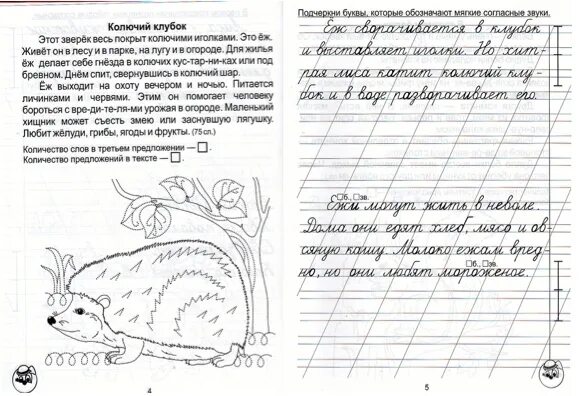 Колючий клубок
Этот зверёк весь покрыт колючими иголками. Это ёж.
Живёт он в лесу и в парке, на лугу и в огороде. Для жилья
ёж делает себе гнёзда в колючих кус-тар-ни-ках или под
бревном. Днём спит, свернувшись в колючий шар.
Ёж выходит на охоту вечером и ночью. Питается
личинками и червями. Этим он помогает человеку
бороться с вро-ди-те-ля-ми урожая в огороде. Маленький
хищник может съесть змею или заснувшую лягушку.
Любит жёлуди, грибы, ягоды и фрукты. (75 сл.)
Количество слов в третьем предложении — □.
Количество предложений в тексте — □.
4
Подчеркни буквы, которые обозначают мягкие согласные звуки.
Ёж сворачивается в клубок
и выставляет иголки. Но хит-
рая лиса катит колючий клу-
бок и в воде разворачивает его.
□б., □зв.
Ежи могут жить в неволе.
Дома они едят хлеб, мясо и ов-
сяную кашу. Молоко ежам вред-
□б., □зв.
но, но они любят мороженое.
5